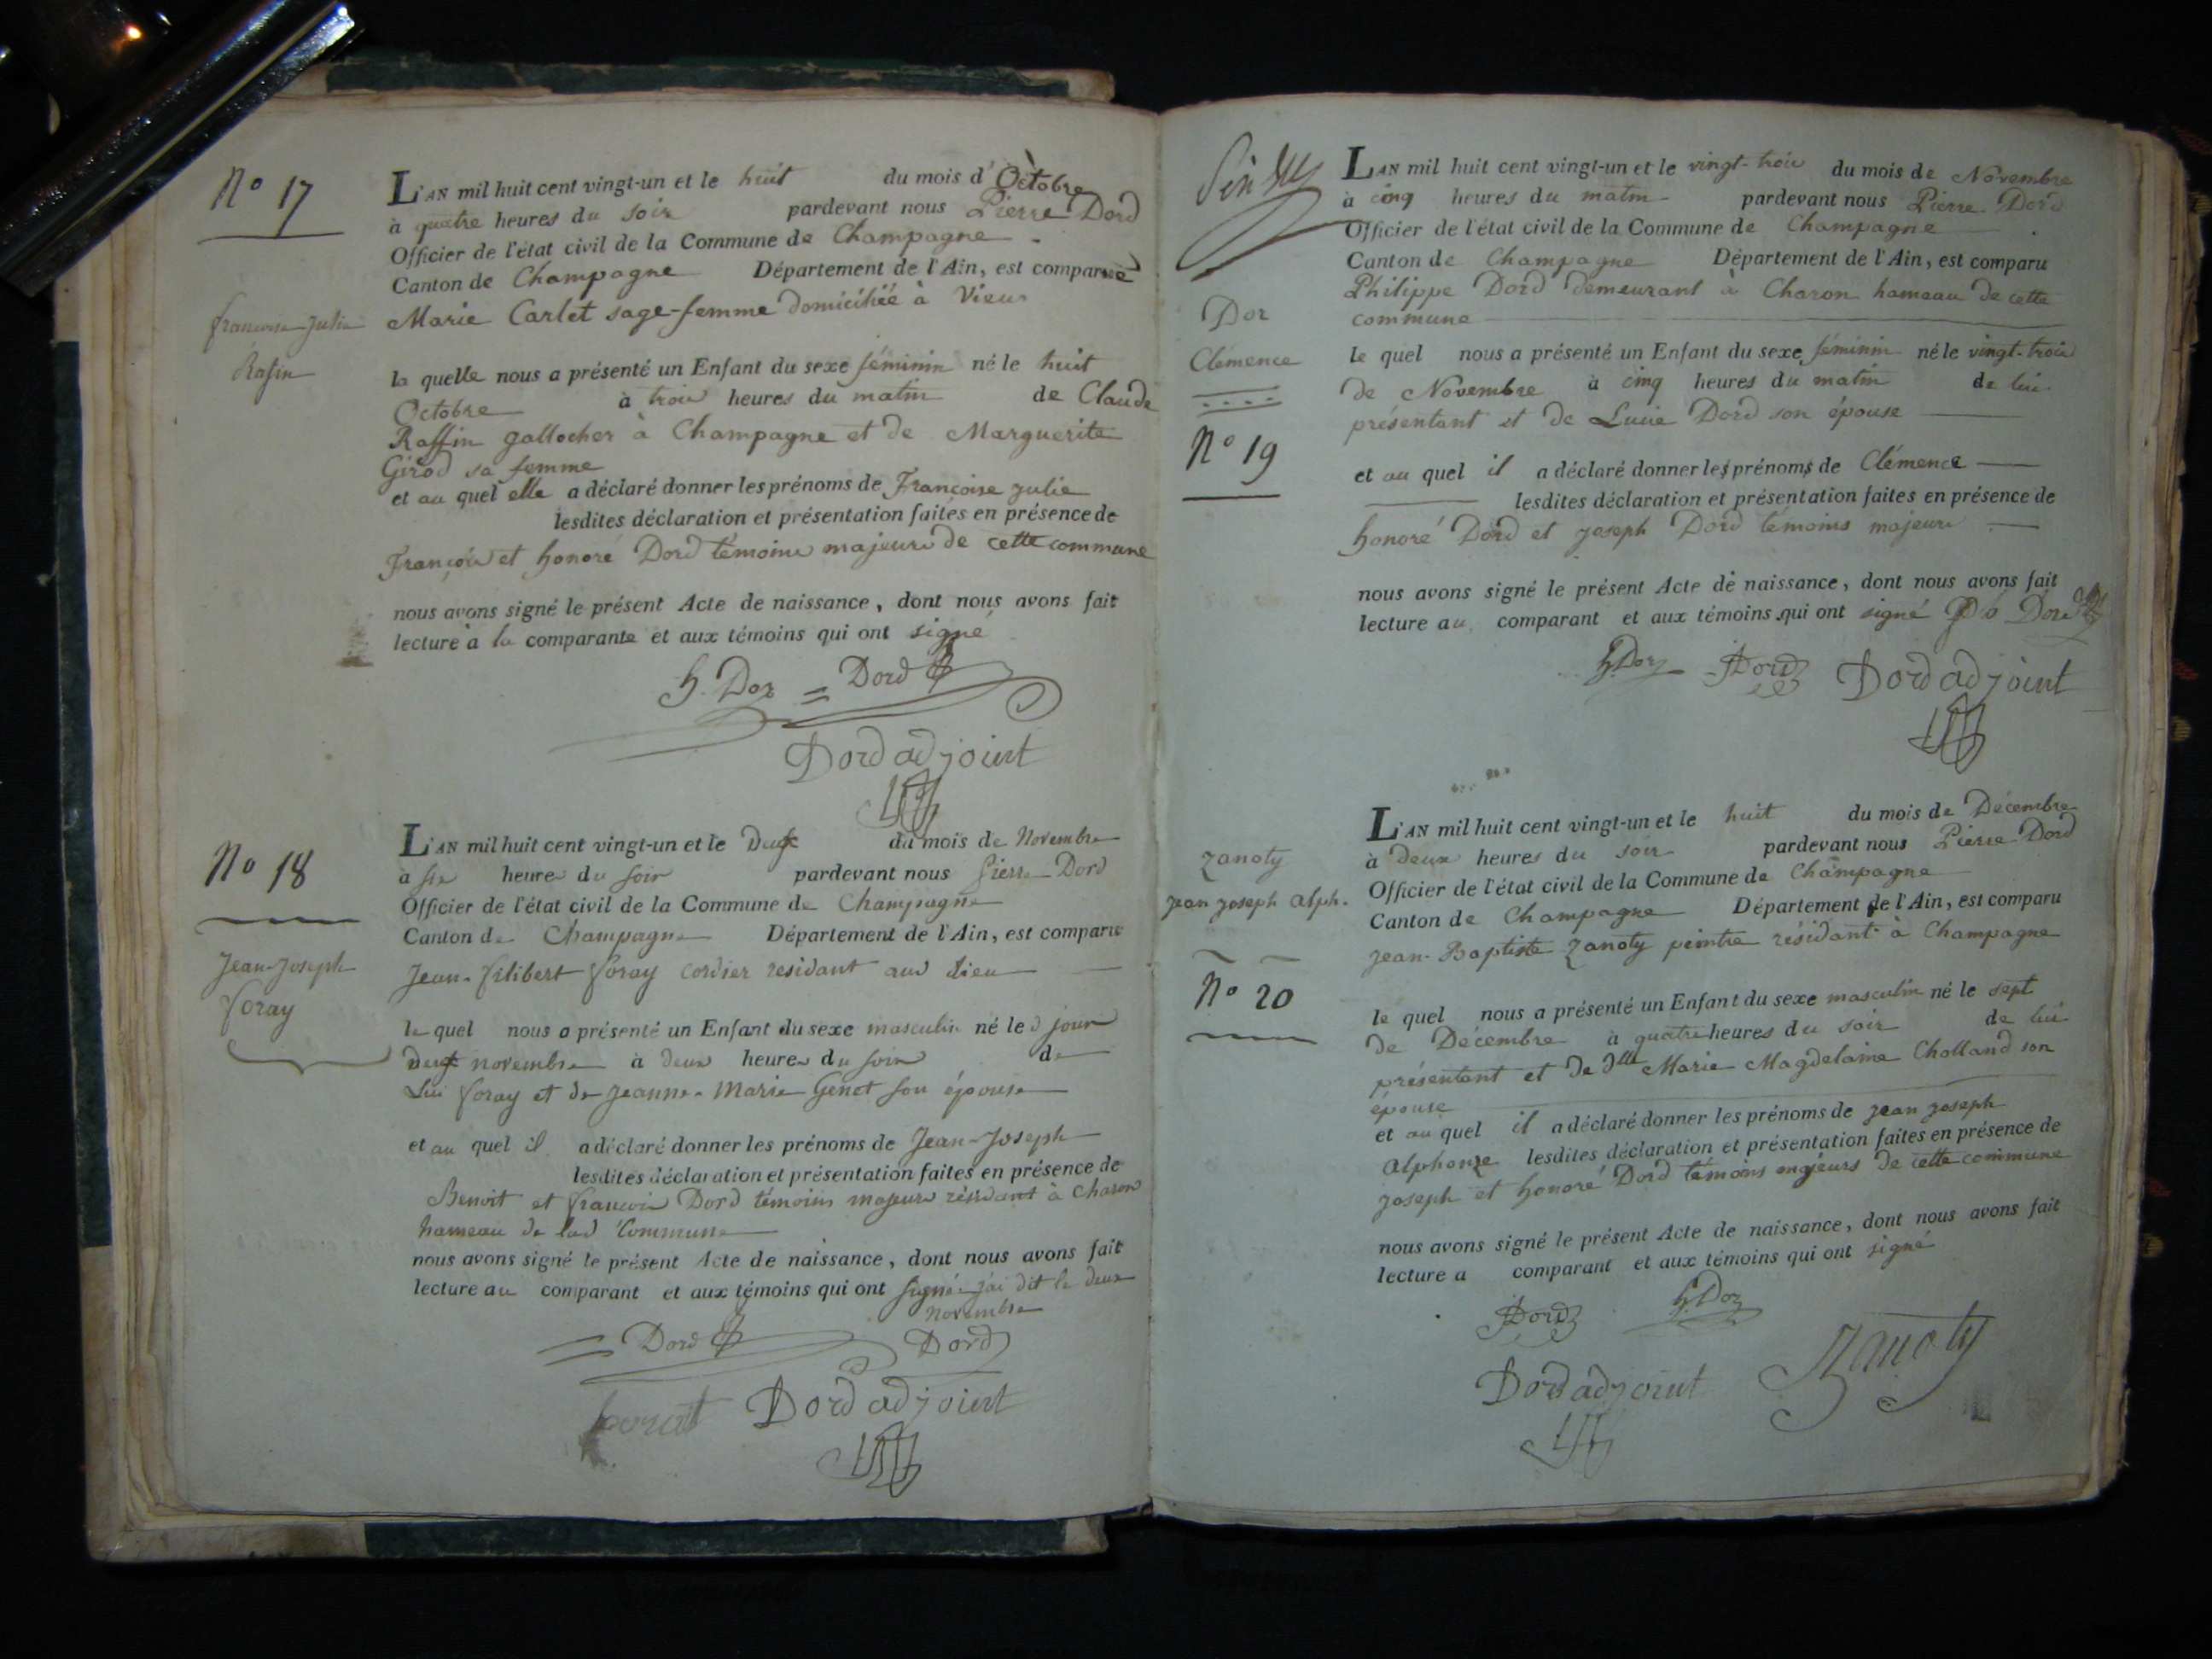 N° 17
francoise Julie
Rafin
L'AN mil huit cent vingt-un et le huit du mois d'Octobre
à quatre heures du soir pardevant nous Pierre Dord
Officier de l'état civil de la Commune de Champagne
Canton de Champagne Département de l'Ain, est comparue
Marie Carlet sage-femme domiciliée à Vieu
la quelle nous a présenté un Enfant du sexe féminin né le huit
Octobre à trois heures du matin de Claude
Raffin gallocher à Champagne et de Marguerite
Girod sa femme
et au quel elle a déclaré donner les prénoms de Françoise Julie
lesdites déclaration et présentation faites en présence de
François et honoré Dord témoins majeurs de cette commune
nous avons signé le présent Acte de naissance, dont nous avons fait
lecture à la comparante et aux témoins qui ont signé
h. Dor = Dord
Dord adjoint
N° 18
Jean-Joseph
foray
L'AN mil huit cent vingt-un et le Deux du mois de Novembre
à six heures du soir pardevant nous Pierre Dord
Officier de l'état civil de la Commune de Champagne
Canton de Champagne Département de l'Ain, est comparu
Jean-filibert foray cordier residant aud lieu
le quel nous a présenté un Enfant du sexe masculin né le d jour
deux novembre à deux heures du soir de
Lui foray et de Jeanne-Marie Genet son épouse
et au quel il a déclaré donner les prénoms de Jean-Joseph
lesdites déclaration et présentation faites en présence de
Benoit et francois Dord témoins majeurs résidant à Charon
hameau de lad Commune
nous avons signé le présent Acte de naissance, dont nous avons fait
lecture au comparant et aux témoins qui ont signé j'ai dit le deux
novembre
= Dord Dord
forat Dord adjoint
Dor
Clémence
N° 19
L'AN mil huit cent vingt-un et le vingt-trois du mois de Novembre
à cinq heures du matin pardevant nous Pierre Dord
Officier de l'état civil de la Commune de Champagne
Canton de Champagne Département de l'Ain, est comparu
Philippe Dord demeurant à Charon hameau de cette
commune
le quel nous a présenté un Enfant du sexe féminin né le vingt-trois
de Novembre à cinq heures du matin de lui
présentant et de Lucie Dord son épouse
et au quel il a déclaré donner les prénoms de Clémence
lesdites déclaration et présentation faites en présence de
honoré Dord et joseph Dord témoins majeurs
nous avons signé le présent Acte de naissance, dont nous avons fait
lecture au comparant et aux témoins qui ont signé Dord
h. Dor Dord Dord adjoint
Zanoty
jean joseph alph.
N° 20
L'AN mil huit cent vingt-un et le huit du mois de Décembre
à Deux heures du soir pardevant nous Pierre Dord
Officier de l'état civil de la Commune de Champagne
Canton de Champagne Département de l'Ain, est comparu
jean-Baptiste Zanoty peintre résidant à Champagne
le quel nous a présenté un Enfant du sexe masculin né le sept
de Décembre à quatre heures du soir de lui
présentant et de dlle Marie Magdelaine Cholland son
épouse
et au quel il a déclaré donner les prénoms de jean joseph
alphonze lesdites déclaration et présentation faites en présence de
joseph et honoré Dord témoins majeurs de cette commune
nous avons signé le présent Acte de naissance, dont nous avons fait
lecture a comparant et aux témoins qui ont signé
Dord h. Dor
Dord adjoint Zanoty